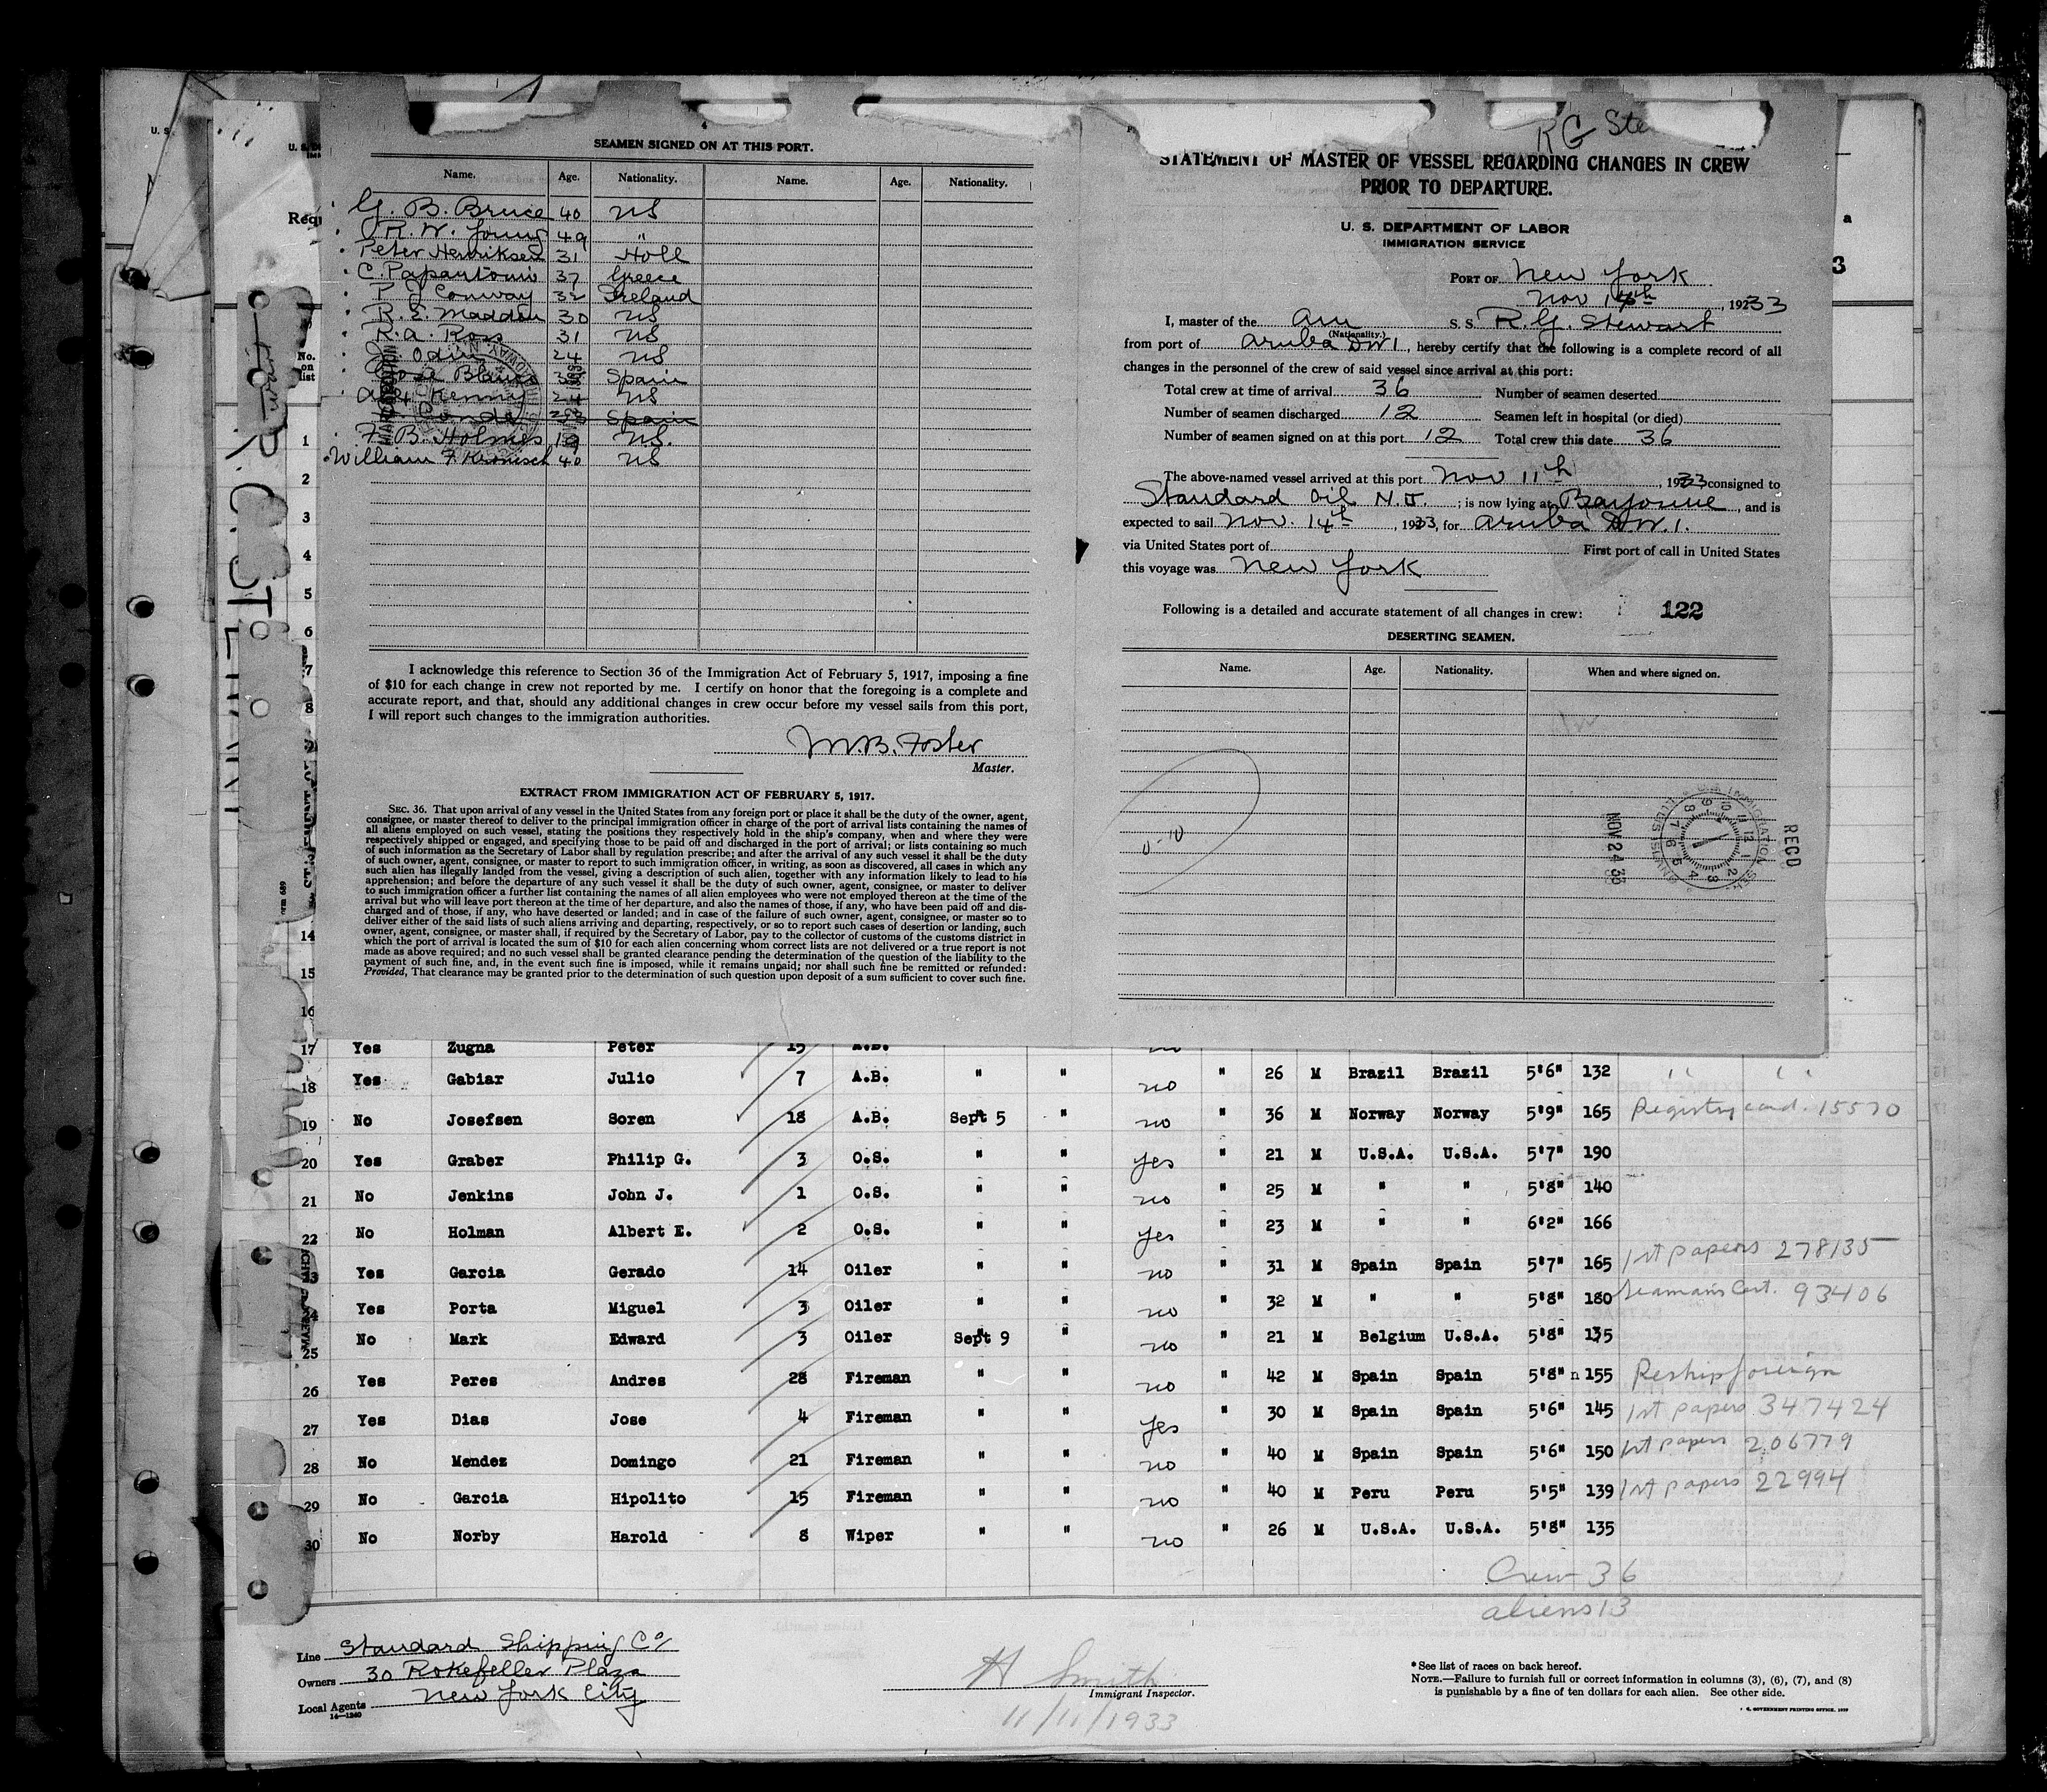 SEAMEN SIGNED ON AT THIS PORT.
Name. Age. Nationality. Name. Age. Nationality.
G. B. Bruce 40 US
R. W. Young 49 "
Peter Henriksen 31 Holl
C. Papantoni 37 Greece
P. J. Conway 32 Ireland
R. E. Madden 30 US
R. A. Ross 31 US
Odin 24 US
Jose Blanco Spain
Kenny 24 US
Conde 28 Spain
F. B. Holmes 19 US.
William F. 40 US
I acknowledge this reference to Section 36 of the Immigration Act of February 5, 1917, imposing a fine
of $10 for each change in crew not reported by me. I certify on honor that the foregoing is a complete and
accurate report, and that, should any additional changes in crew occur before my vessel sails from this port,
I will report such changes to the immigration authorities.
M.B. Foster
Master.
EXTRACT FROM IMMIGRATION ACT OF FEBRUARY 5, 1917.
SEC. 36. That upon arrival of any vessel in the United States from any foreign port or place it shall be the duty of the owner, agent,
consignee, or master thereof to deliver to the principal immigration officer in charge of the port of arrival lists containing the names of
all aliens employed on such vessel, stating the positions they respectively hold in the ship's company, when and where they were
respectively shipped or engaged, and specifying those to be paid off and discharged in the port of arrival; or lists containing so much
of such information as the Secretary of Labor shall by regulation prescribe; and after the arrival of any such vessel it shall be the duty
of such owner, agent, consignee, or master to report to such immigration officer, in writing, as soon as discovered, all cases in which any
such alien has illegally landed from the vessel, giving a description of such alien, together with any information likely to lead to his
apprehension; and before the departure of any such vessel it shall be the duty of such owner, agent, consignee, or master to deliver
to such immigration officer a further list containing the names of all alien employees who were not employed thereon at the time of the
arrival but who will leave port thereon at the time of her departure, and also the names of those, if any, who have been paid off and dis-
charged and of those, if any, who have deserted or landed; and in case of the failure of such owner, agent, consignee, or master so to
deliver either of the said lists of such aliens arriving and departing, respectively, or so to report such cases of desertion or landing, such
owner, agent, consignee, or master shall, if required by the Secretary of Labor, pay to the collector of customs of the customs district in
which the port of arrival is located the sum of $10 for each alien concerning whom correct lists are not delivered or a true report is not
made as above required; and no such vessel shall be granted clearance pending the determination of the question of the liability to the
payment of such fine, and, in the event such fine is imposed, while it remains unpaid; nor shall such fine be remitted or refunded:
Provided, That clearance may be granted prior to the determination of such question upon deposit of a sum sufficient to cover such fine.
RG Ste
STATEMENT OF MASTER OF VESSEL REGARDING CHANGES IN CREW
PRIOR TO DEPARTURE.
U. S. DEPARTMENT OF LABOR
IMMIGRATION SERVICE
PORT OF New York
Nov 14th, 1933
I, master of the Am S. S. R. G. Stewart
(Nationality.)
from port of Aruba DWI, hereby certify that the following is a complete record of all
changes in the personnel of the crew of said vessel since arrival at this port:
Total crew at time of arrival 36 Number of seamen deserted
Number of seamen discharged 12 Seamen left in hospital (or died)
Number of seamen signed on at this port 12 Total crew this date 36
The above-named vessel arrived at this port Nov 11th, 1933 consigned to
Standard Oil N.J.; is now lying at Bayonne, and is
expected to sail Nov. 14th, 1933, for Aruba D.W.I.
via United States port of First port of call in United States
this voyage was New York
Following is a detailed and accurate statement of all changes in crew: 122
DESERTING SEAMEN.
Name. Age. Nationality. When and where signed on.
RECD
NOV 24 33
17 Yes Zugna Peter 15 A.B. no
18 Yes Gabiar Julio 7 A.B. " " no " 26 M Brazil Brazil 5'6" 132 " "
19 No Josefsen Soren 18 A.B. Sept 5 " no " 36 M Norway Norway 5'9" 165 Registry card. 15570
20 Yes Graber Philip G. 3 O.S. " " yes " 21 M U.S.A. U.S.A. 5'7" 190
21 No Jenkins John J. 1 O.S. " " no " 25 M " " 5'8" 140
22 No Holman Albert E. 2 O.S. " " yes " 23 M " " 6'2" 166
3 Yes Garcia Gerado 14 Oiler " " no " 31 M Spain Spain 5'7" 165 1st papers 278135
4 Yes Porta Miguel 3 Oiler " " no " 32 M " " 5'8" 180 Seamans Cert. 93406
25 No Mark Edward 3 Oiler Sept 9 " no " 21 M Belgium U.S.A. 5'8" 135
26 Yes Peres Andres 28 Fireman " " no " 42 M Spain Spain 5'8" n 155 Reship foreign
27 Yes Dias Jose 4 Fireman " " yes " 30 M Spain Spain 5'6" 145 1st papers 347424
28 No Mendez Domingo 21 Fireman " " no " 40 M Spain Spain 5'6" 150 1st papers 206779
29 No Garcia Hipolito 15 Fireman " " no " 40 M Peru Peru 5'5" 139 1st papers 22994
30 No Norby Harold 8 Wiper " " no " 26 M U.S.A. U.S.A. 5'8" 135
Crew 36
aliens 13
Line Standard Shipping Co
Owners 30 Rokefeller Plaza
Local Agents New York City
14-1240
H Smith
Immigrant Inspector.
11/11/1933
* See list of races on back hereof.
NOTE.—Failure to furnish full or correct information in columns (3), (6), (7), and (8)
is punishable by a fine of ten dollars for each alien. See other side.